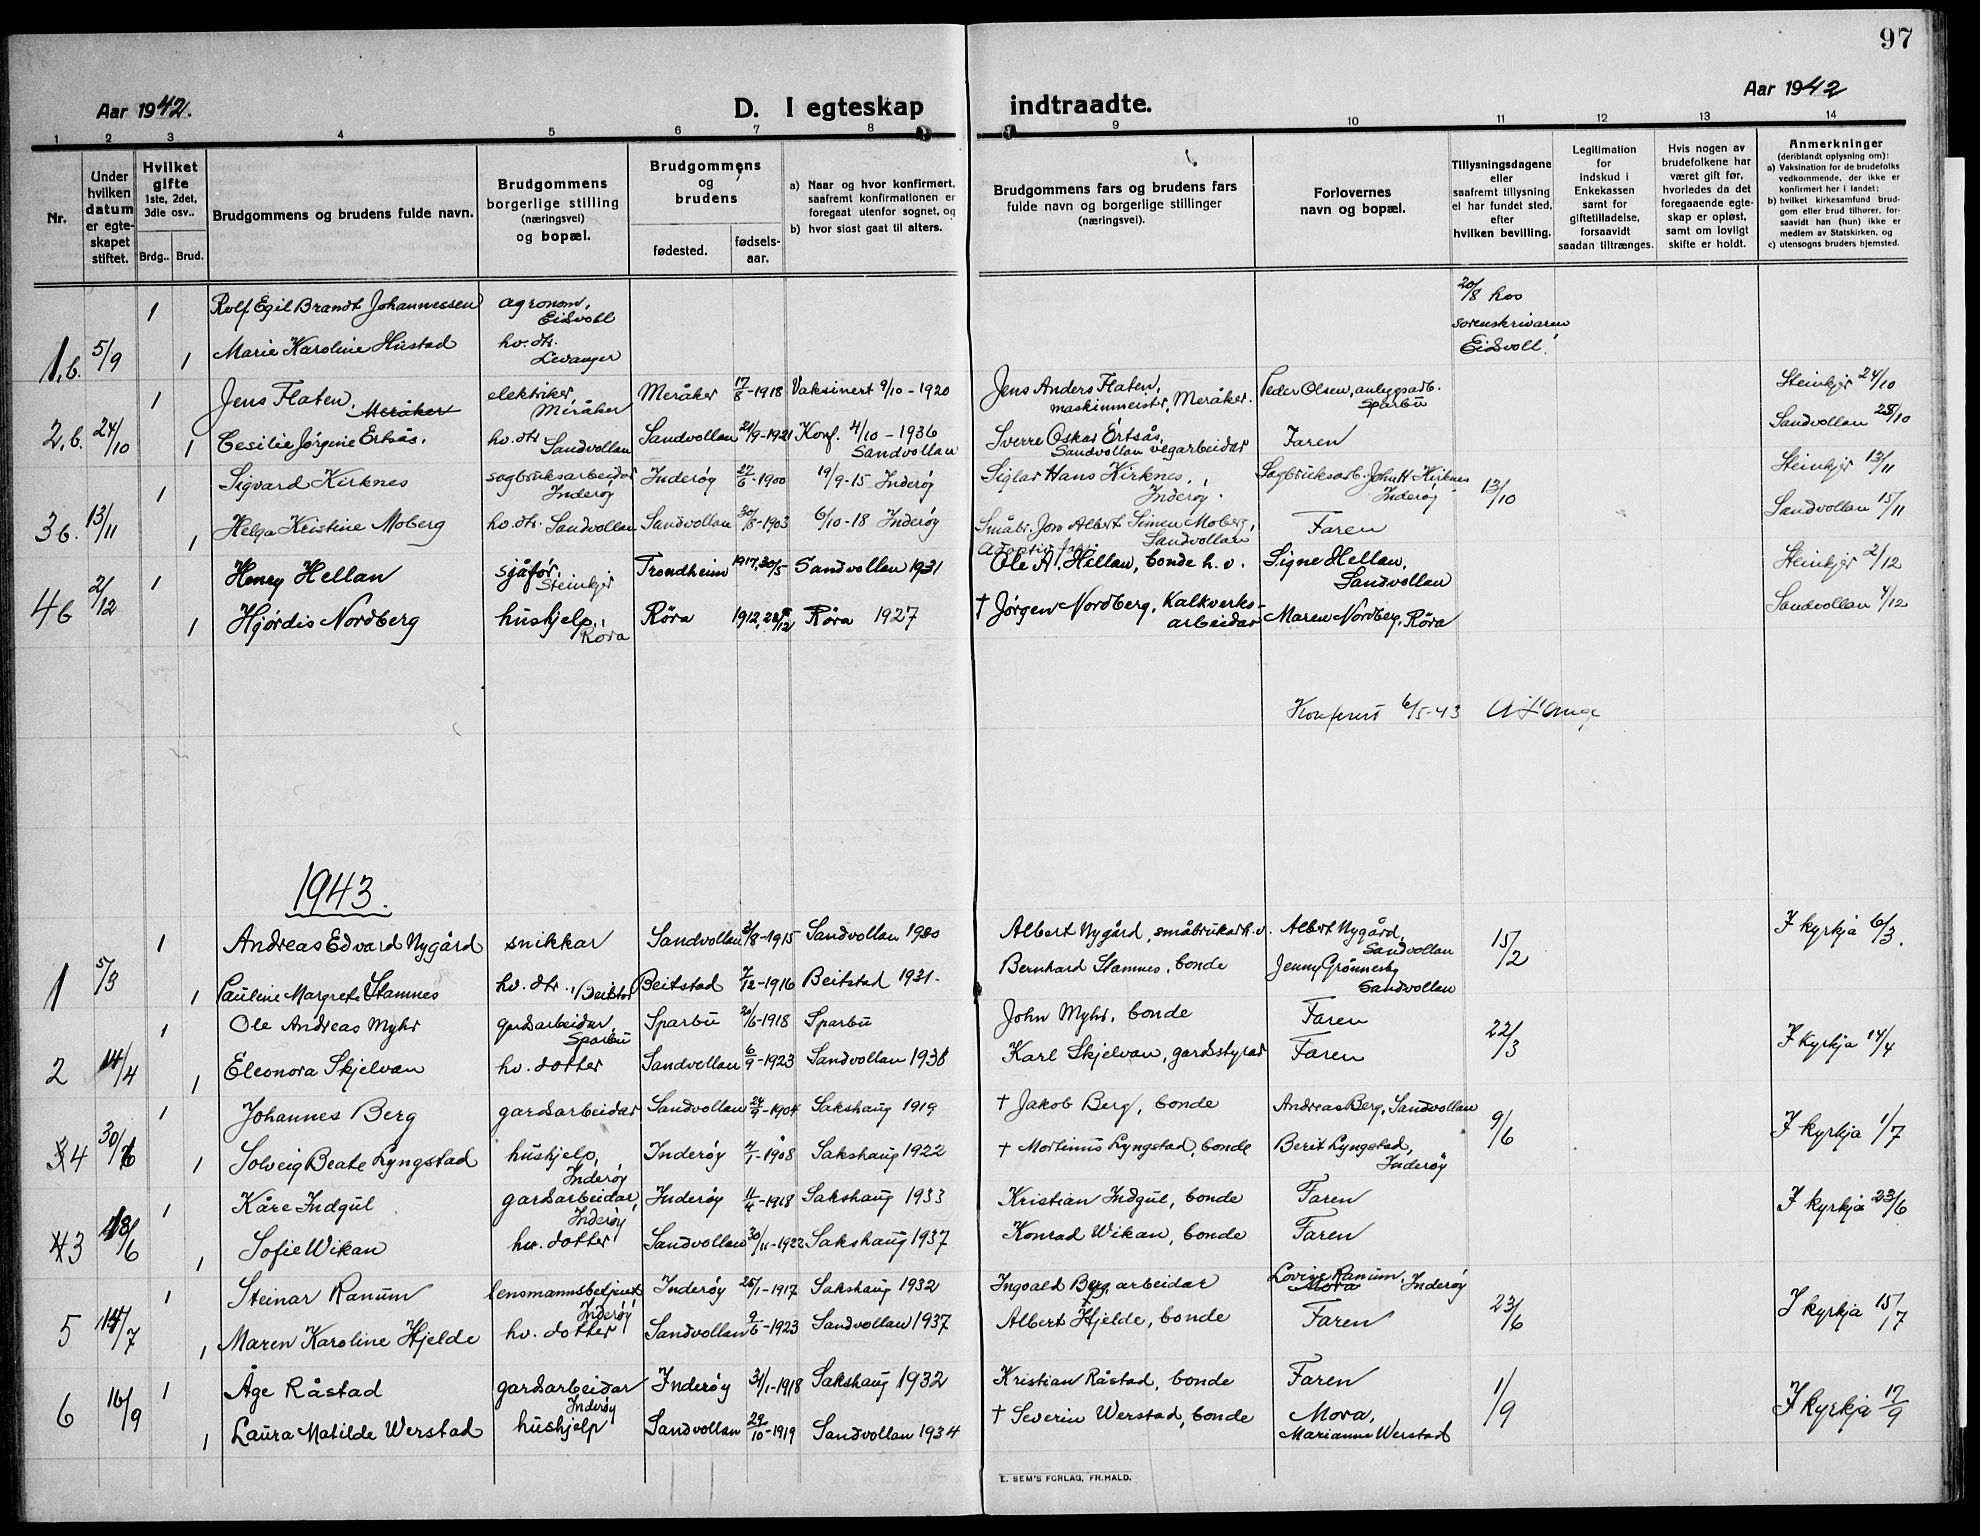 97
Aar 1942.
D. I egteskap indtraadte.
Aar 1942
1 2 3 4 5 6 7 8 9 10 11 12 13 14
Nr.
Under hvilken datum er egteskapet stiftet.
Hvilket gifte 1ste, 2det, 3die osv..
Brdg..
Brud.
Brudgommens og brudens fulde navn.
Brudgommens borgerlige stilling (næringsvei) og bopæl.
Brudgommens og brudens
fødested.
fødsels-aar.
a) Naar og hvor konfirmert, saafremt konfirmationen er foregaat utenfor sognet, og
b) hvor sidst gaat til alters.
Brudgommens fars og brudens fars fulde navn og borgerlige stillinger (næringsvei).
Forlovernes navn og bopæl.
Tillysningsdagene eller saafremt tillysning ei har fundet sted, efter hvilken bevilling.
Legitimation for indskud i Enkekassen samt for giftetilladelse, forsaavidt saadan tiltrænges.
Hvis nogen av brudefolkene har været gift før, hvorledes da det foregaaende egteskap er opløst, samt om lovligt skifte er holdt.
Anmerkninger (deriblandt oplysning om):
a) Vaksination for de brudefolks vedkommende, der ikke er konfirmert her i landet;
b) hvilket kirkesamfund brudgom eller brud tilhører, forsaavidt han (hun) ikke er medlem av Statskirken, og
c) utensogns bruders hjemsted.
1 Rolf Egil Brandt Johannessen agronom, Eidsvoll 20/8 hos sorenskrivaren Eidsvoll.
1.b. 5/9 1 Marie Karoline Hustad hv. dtr. Levanger
1 Jens Flaten, Meråker elektriker, Meråker Meråker 17/8-1918 Vaksinert 9/10-1920 Jens Anders Flaten, maskinmeister, Meråker. Peder Olsen, anleggsarb. Sparbu Steinkjer 24/10
2.b. 24/10 1 Cesilie Jørgine Ertsås. hv. dtr. Sandvollan Sandvollan 21/9-1921 Konf. 4/10-1936 Sandvollan Sverre Oskar Ertsås, Sandvollan vegarbeidar Faren Sandvollan 25/10
1 Sigvard Kirknes sagbruksarbeidar Inderøy Inderøy 27/6-1900 19/9-15 Inderøy Hans Kirknes, Inderøy. Sagbruksarb. John H. Kirknes Inderøy 13/10 Steinkjer 13/11
3 b. 13/11 1 Helga Kristine Moberg hv. dtr. Sandvollan Sandvollan 30/8-1903 6/10-18 Inderøy Småbr. Jon Albert Simen Moberg, Sandvollan Faren Sandvollan 15/11
1 Henry Hellan sjåfør, Steinkjer Trondheim 1917, 30/5 Sandvollan 1931 Adoptiv far: Ole A. Hellan, bonde h. v. Signe Hellan, Sandvollan Steinkjer 2/12
4 b 2/12 1 Hjørdis Nordberg hushjelp, Røra Røra 1912, 28/12 Røra 1927 † Jørgen Nordberg, Kalkverks-arbeidar Maren Nordberg, Røra Sandvollan 4/12
Konferert 6/5-43
1943.
1 Andreas Edvard Nygård snikkar Sandvollan 3/8-1915 Sandvollan 1930 Albert Nygård, småbrukar h. v. Albert Nygård, Sandvollan 15/2 I kyrkja 6/3.
1 5/3 1 Pauline Margrete Stamnes hv. dtr. Beitstad Beitstad 7/12-1916 Beitstad 1931. Bernhard Stamnes, bonde Jenny Grønnesby Sandvollan
1 Ole Andreas Myhr gardsarbeidar, Sparbu Sparbu 20/6-1918 Sparbu John Myhr, bonde Faren 22/3 I kyrkja 14/4
2 14/4 1 Eleonora Skjelvan hv. dotter Sandvollan 6/9-1923 Sandvollan 1938 Karl Skjelvan, gardsstyrar Faren
1 Johannes Berg gardsarbeidar Sandvollan 24/9-1904 Sakshaug 1919 † Jakob Berg, bonde Andreas Berg, Sandvollan 9/6 I kyrkja 1/7
4 30/6 1 Solveig Beate Lyngstad hushjelp, Inderøy Inderøy 4/1-1908 Sakshaug 1922 † Mortinus Lyngstad, bonde Berit Lyngstad, Inderøy
1 Kåre Indgul gardsarbeidar, Inderøy Inderøy 11/4-1918 Sakshaug 1933 Kristian Indgul, bonde Faren I kyrkja 23/6
3 1 Sofie Wikan hv. dotter Sandvollan 30/11-1922 Sakshaug 1937 Konrad Wikan, bonde Faren
1 Steinar Ranum lensmannsbetjent Inderøy Inderøy 25/1-1917 Sakshaug 1932 Ingvald Berg, arbeidar Lovise Ranum, Mora Inderøy 23/6 I kyrkja 15/7
5 14/7 1 Maren Karoline Hjelde hv. dotter Sandvollan 9/6-1923 Sandvollan 1937 Albert Hjelde, bonde Faren
1 Åge Råstad gardsarbeidar Inderøy Inderøy 31/1-1918 Sakshaug 1932 Kristian Råstad, bonde Faren 1/9 I kyrkja 17/9
6 16/9 1 Laura Matilde Werstad hushjelp Sandvollan 29/10-1919 Sandvollan 1934 † Severin Werstad, bonde Mora, Marianne Werstad
E. SEM'S FORLAG, FR.HALD.